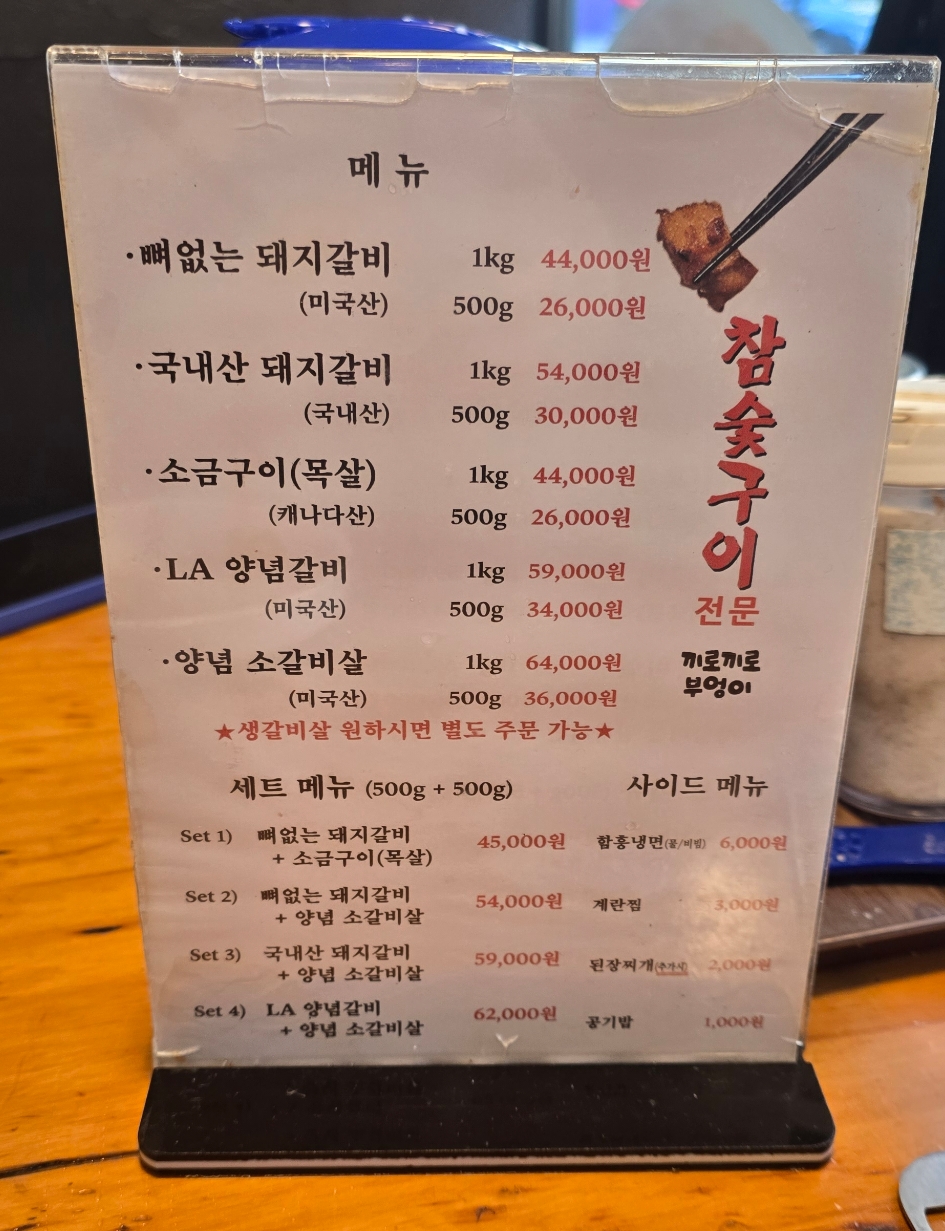 메뉴
·뼈없는 돼지갈비 1kg 44,000원
(미국산) 500g 26,000원
·국내산 돼지갈비 1kg 54,000원
(국내산) 500g 30,000원
·소금구이(목살) 1kg 44,000원
(캐나다산) 500g 26,000원
·LA 양념갈비 1kg 59,000원
(미국산) 500g 34,000원
·양념 소갈비살 1kg 64,000원
(미국산) 500g 36,000원
★생갈비살 원하시면 별도 주문 가능★
참숯구이
전문
끼로끼로
부엉이
세트 메뉴 (500g + 500g)
Set 1) 뼈없는 돼지갈비 45,000원
+ 소금구이(목살)
Set 2) 뼈없는 돼지갈비 54,000원
+ 양념 소갈비살
Set 3) 국내산 돼지갈비 59,000원
+ 양념 소갈비살
Set 4) LA 양념갈비 62,000원
+ 양념 소갈비살
사이드 메뉴
함흥냉면(물/비빔) 6,000원
계란찜 3,000원
된장찌개(추가시) 2,000원
공기밥 1,000원